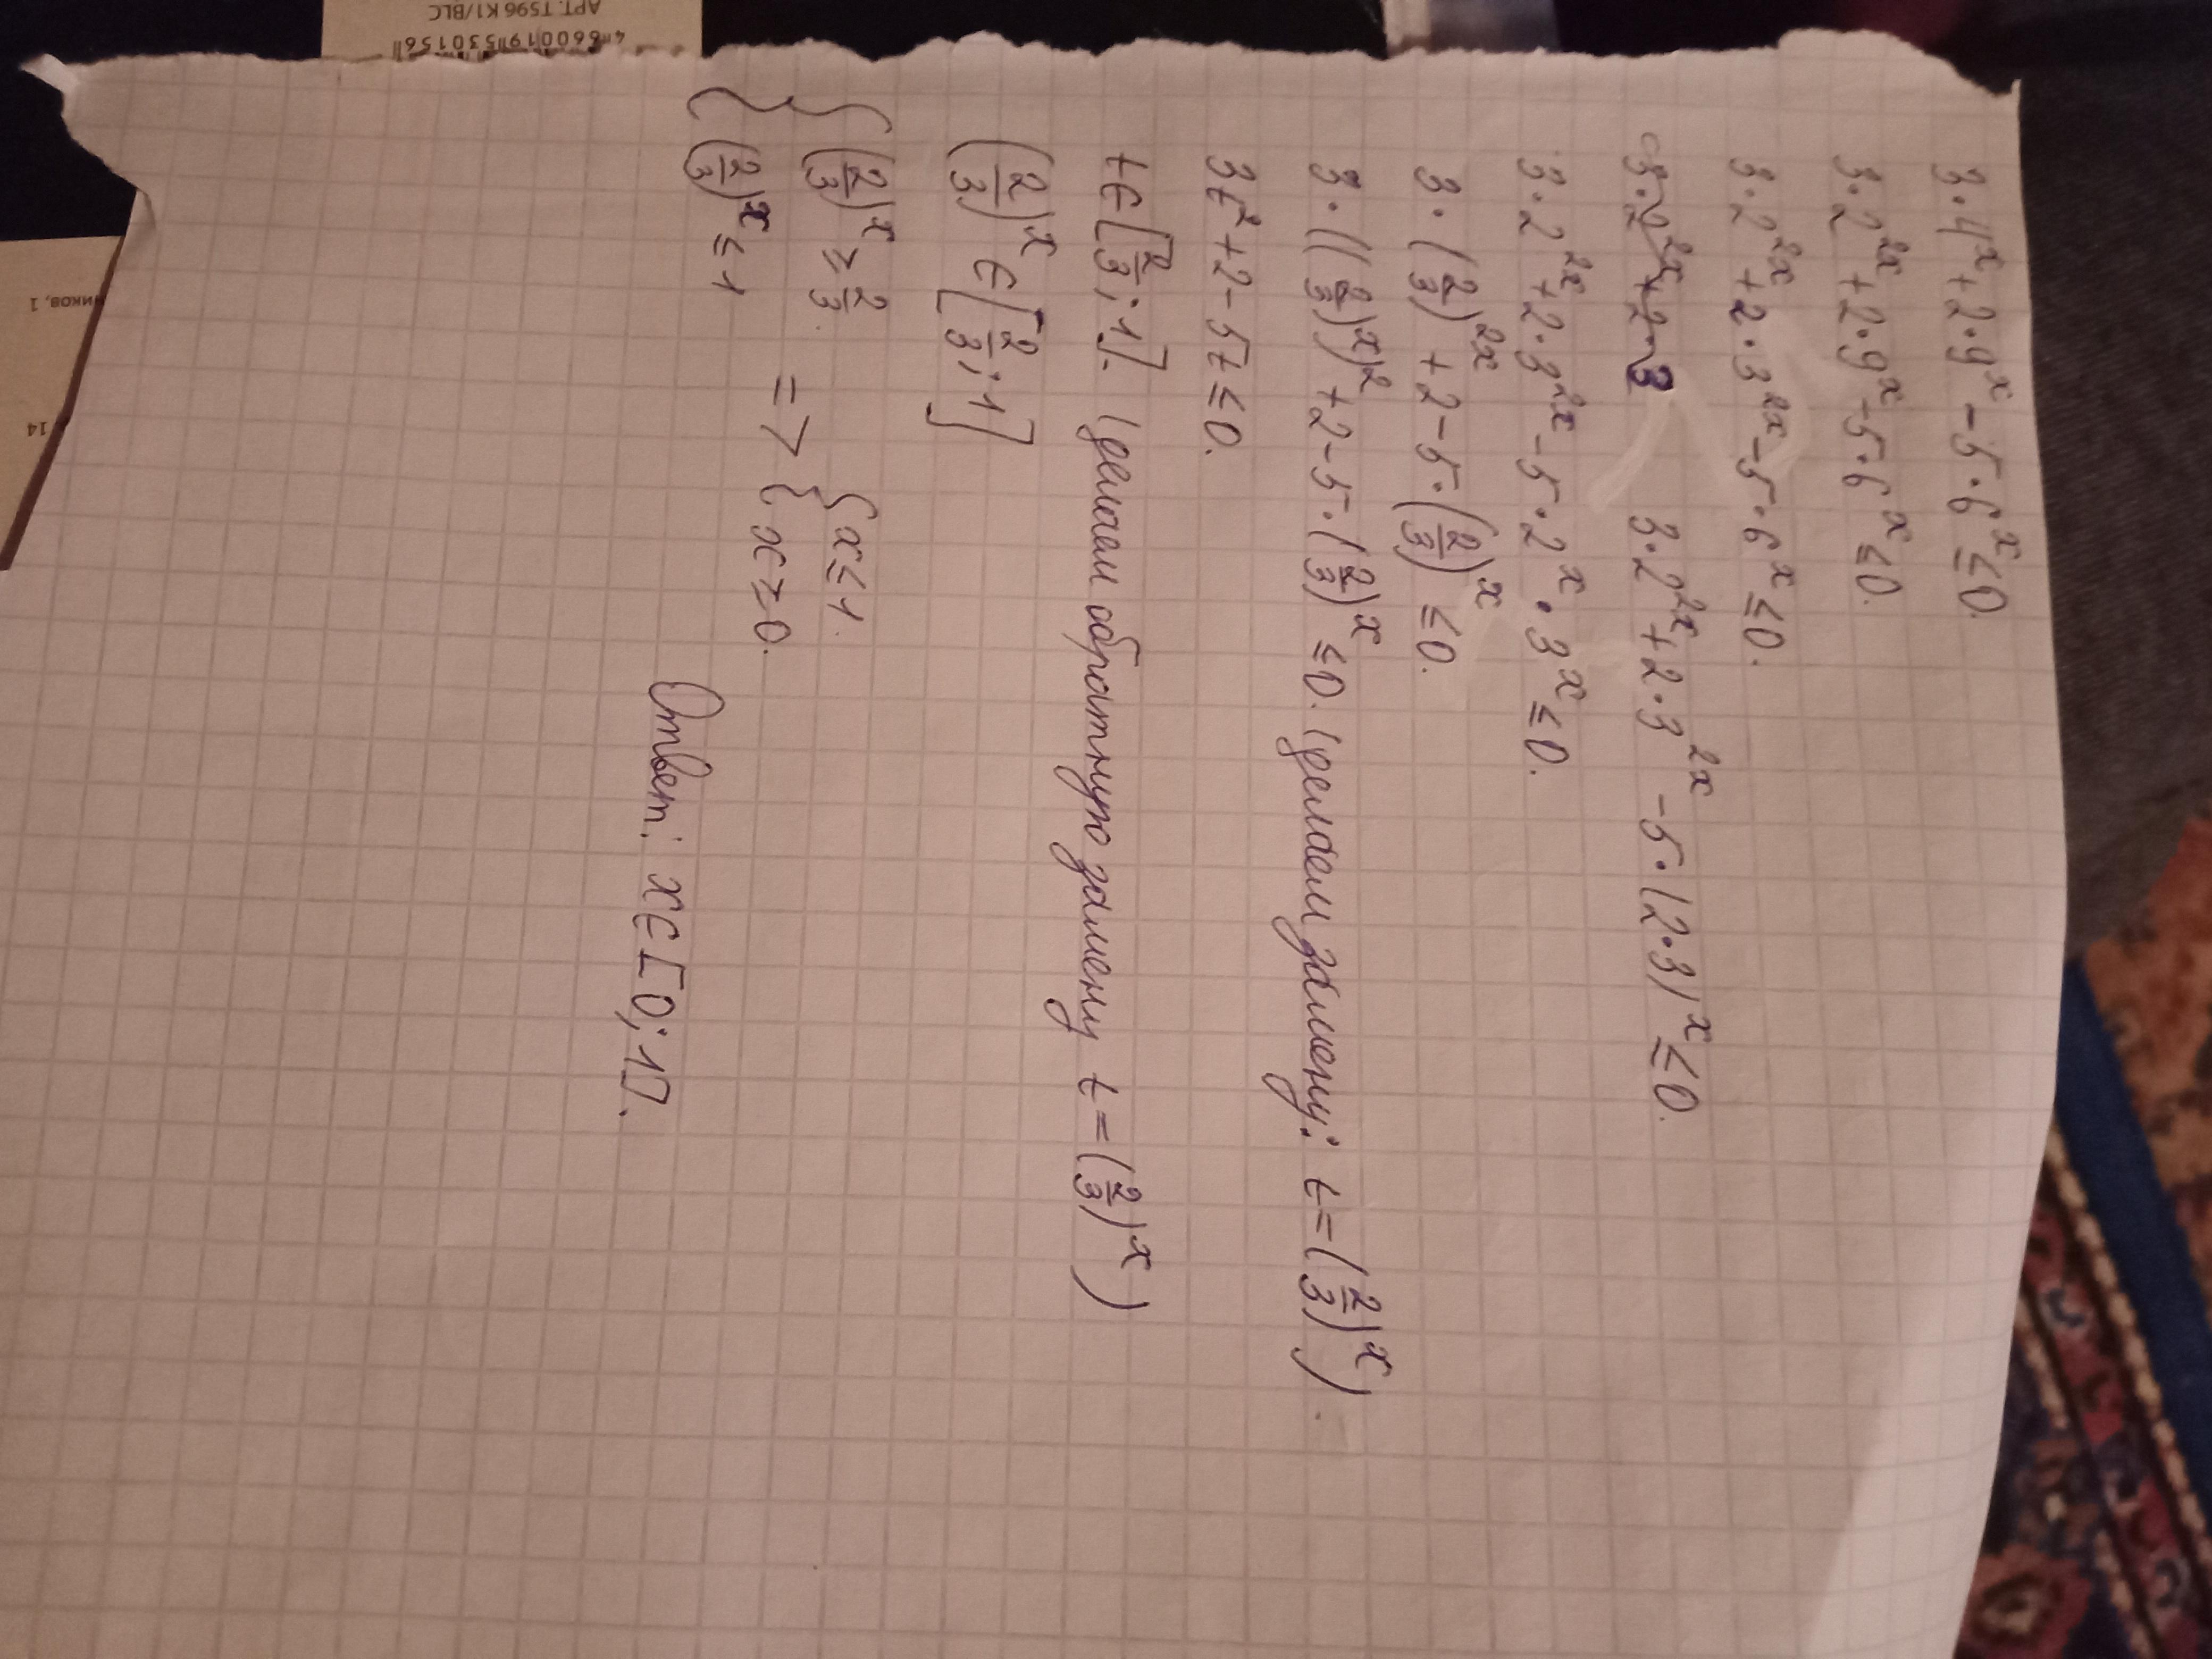 3·4ˣ+2·9ˣ-5·6ˣ≤0.
3·2²ˣ+2·9ˣ-5·6ˣ≤0.
3·2²ˣ+2·3²ˣ-5·6ˣ≤0.
3·2²ˣ+2·3 3·2²ˣ+2·3²ˣ-5·(2·3)ˣ≤0.
3·2²ˣ+2·3²ˣ-5·2ˣ·3ˣ≤0.
3·(2/3)²ˣ+2-5·(2/3)ˣ≤0.
3·((2/3)ˣ)²+2-5·(2/3)ˣ≤0. (делаем замену: t=(2/3)ˣ).
3t²+2-5t≤0.
t∈[2/3;1]. (делаем обратную замену t=(2/3)ˣ)
(2/3)ˣ∈[2/3;1]
{(2/3)ˣ≥2/3. {x≤1.
=>
{(2/3)ˣ≤1 {x≥0.
Ответ: x∈[0;1].
АРТ. T596 K1/BLC
4660019530156
НИКОВ, 1
14